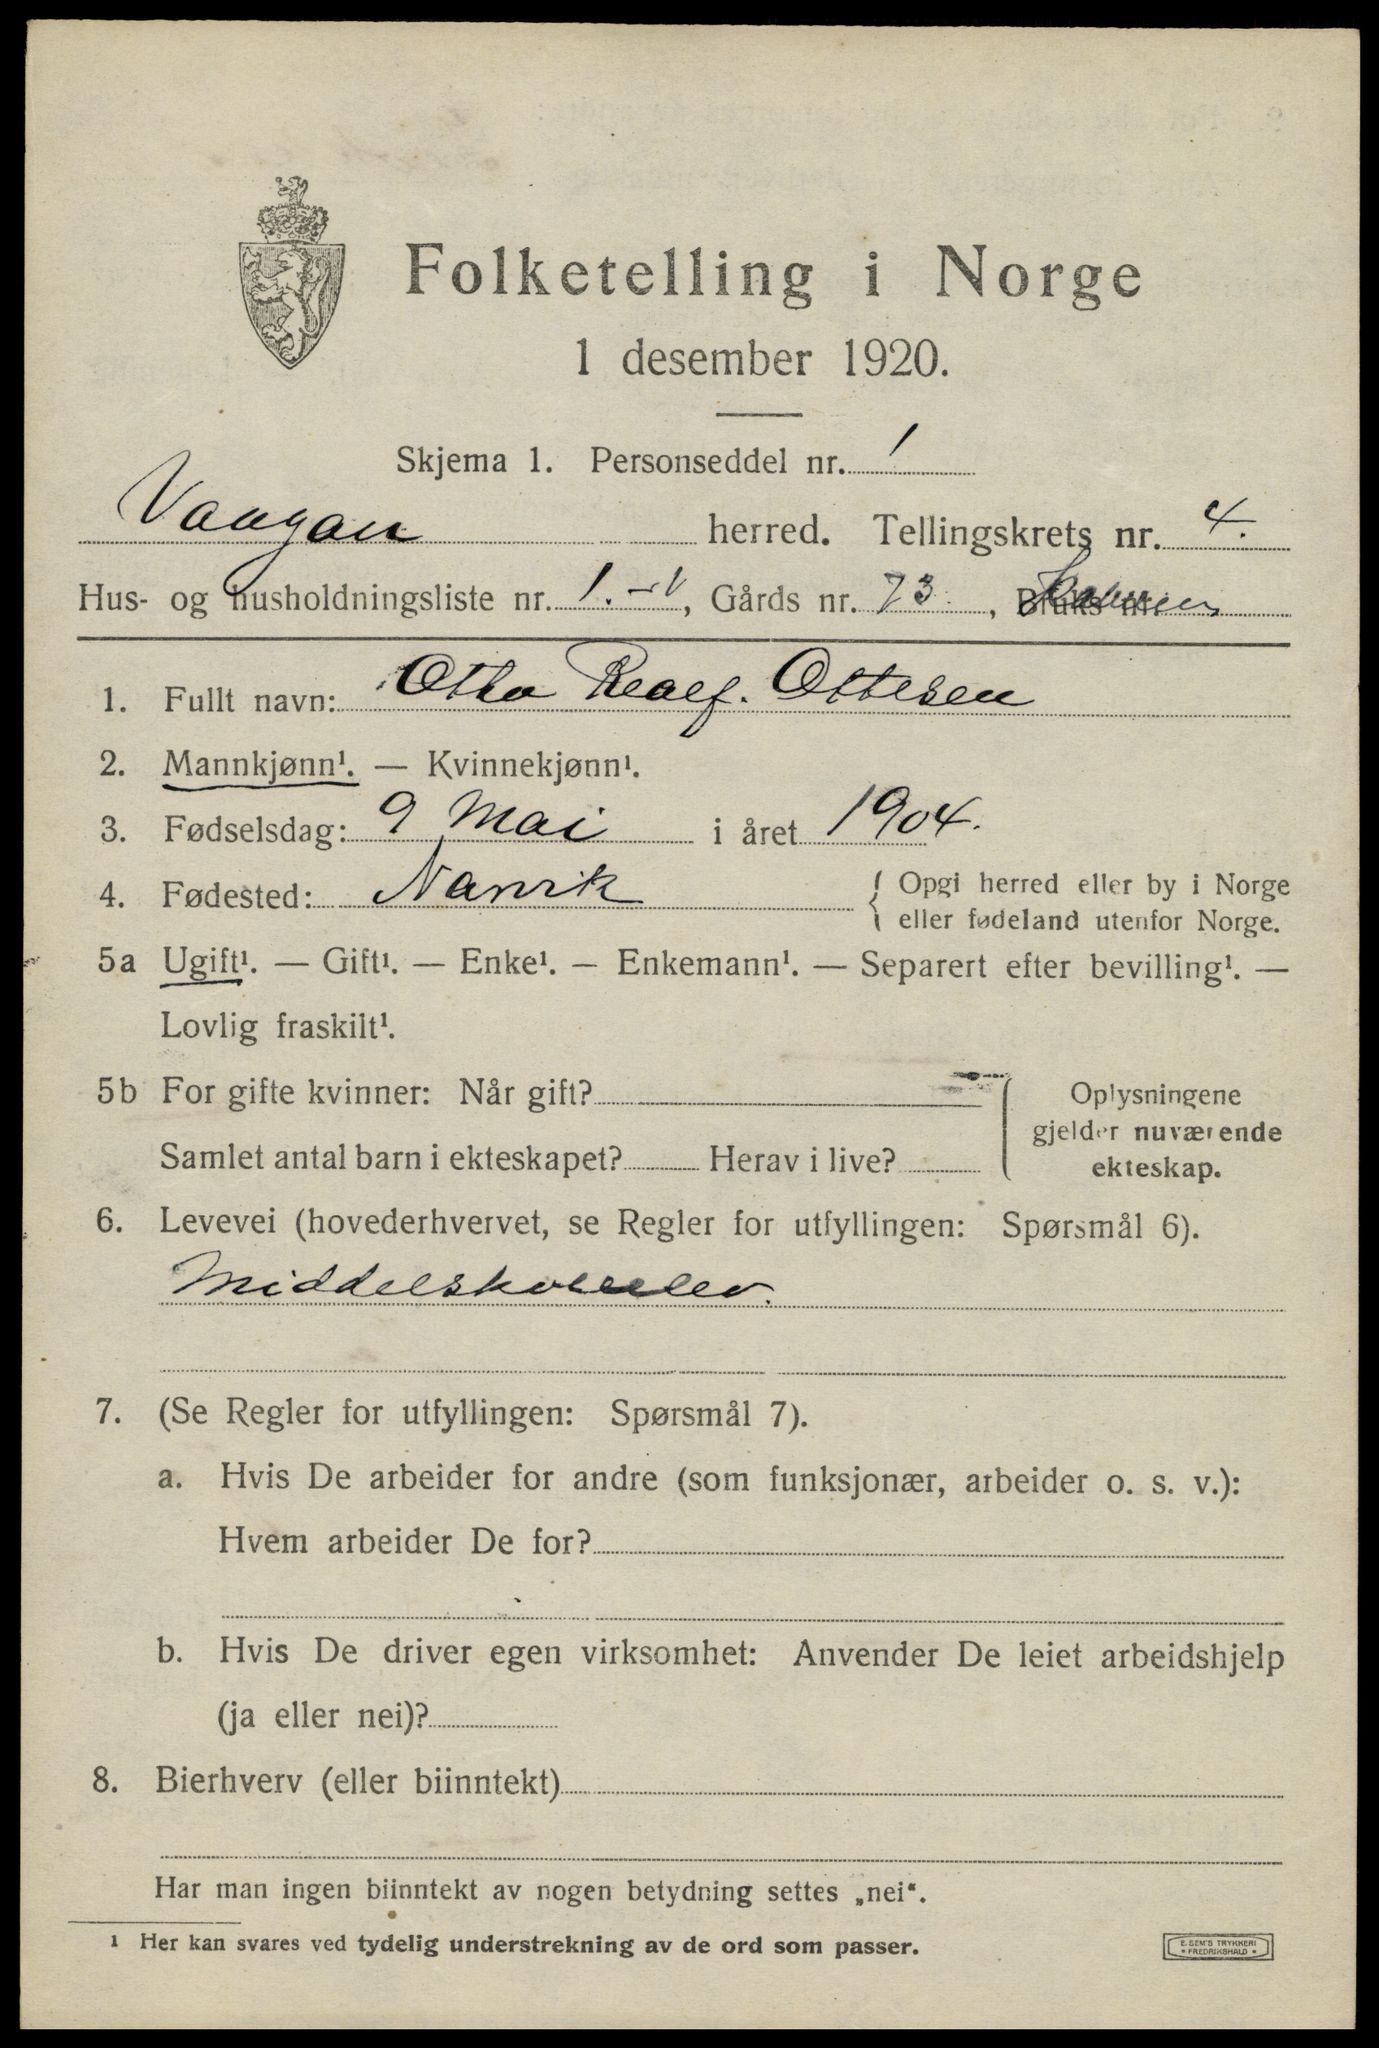 Folketelling i Norge
1 desember 1920.
Skjema 1. Personseddel nr. 1
Vaagan herred. Tellingskrets nr. 4.
Hus- og husholdningsliste nr. 1. , Gårds nr. 73. , Bruks nr.
1. Fullt navn: Otto Realf. Ottesen
2. Mannkjønn¹. — Kvinnekjønn¹.
3. Fødselsdag: 9 Mai i året 1904.
4. Fødested: Narvik { Opgi herred eller by i Norge
eller fødeland utenfor Norge.
5a Ugift¹. — Gift¹. — Enke¹. — Enkemann¹. — Separert efter bevilling¹. —
Lovlig fraskilt¹.
5b For gifte kvinner: Når gift?
Samlet antal barn i ekteskapet? Herav i live?
Oplysningene
gjelder nuværende
ekteskap.
6. Levevei (hovederhvervet, se Regler for utfyllingen: Spørsmål 6).
Middelskoleelev.
7. (Se Regler for utfyllingen: Spørsmål 7).
a. Hvis De arbeider for andre (som funksjonær, arbeider o. s. v.):
Hvem arbeider De for?
b. Hvis De driver egen virksomhet: Anvender De leiet arbeidshjelp
(ja eller nei)?
8. Bierhverv (eller biinntekt)
Har man ingen biinntekt av nogen betydning settes „nei“.
¹ Her kan svares ved tydelig understrekning av de ord som passer.
E. SEM'S TRYKKERI
• FREDRIKSHALD •